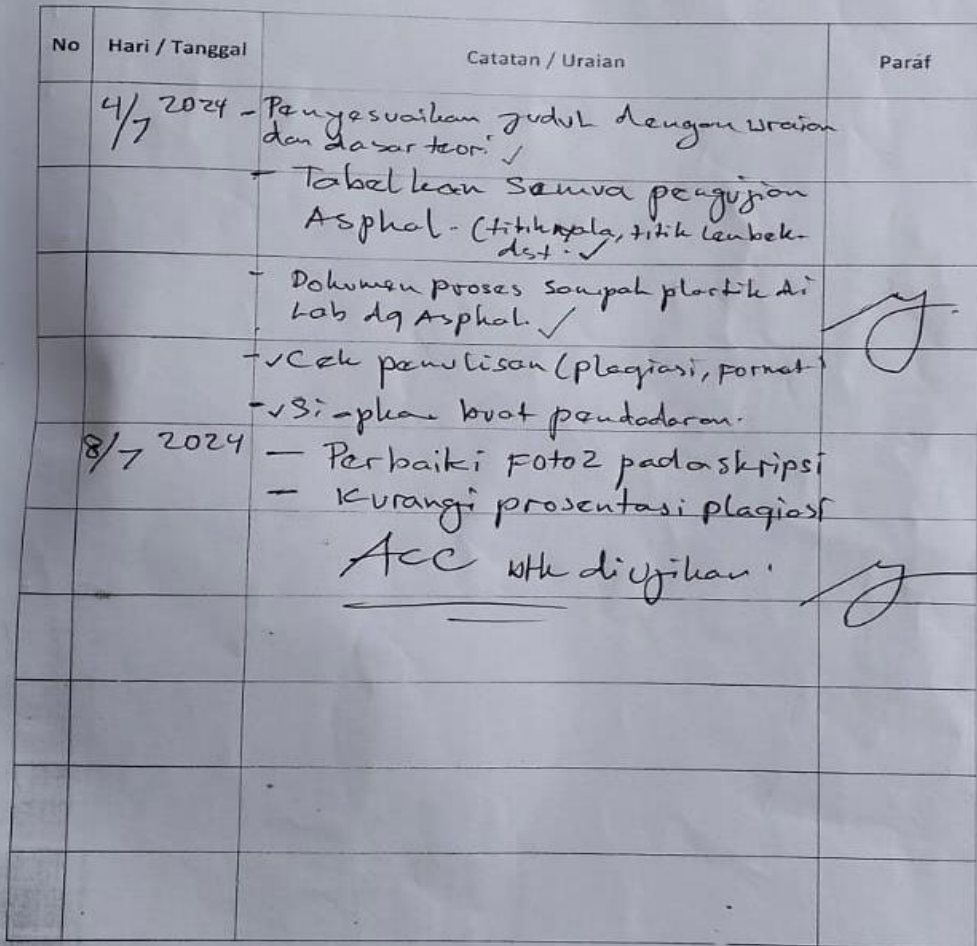 No Hari / Tanggal Catatan / Uraian Paraf
4/7 2024 - Penyesuaikan judul dengan uraian
dan dasar teori ✓
- Tabelkan semua pengujian
Asphal - (titik nyala, titik lembek
dst. ✓
- Dokumen proses sampah plastik di
Lab dg Asphal. ✓
- ✓ Cek penulisan (plagiasi, format)
- ✓ Siapkan buat pendadaran.
8/7 2024 — Perbaiki Foto2 pada skripsi
— Kurangi prosentasi plagiasi
Acc utk diujikan.